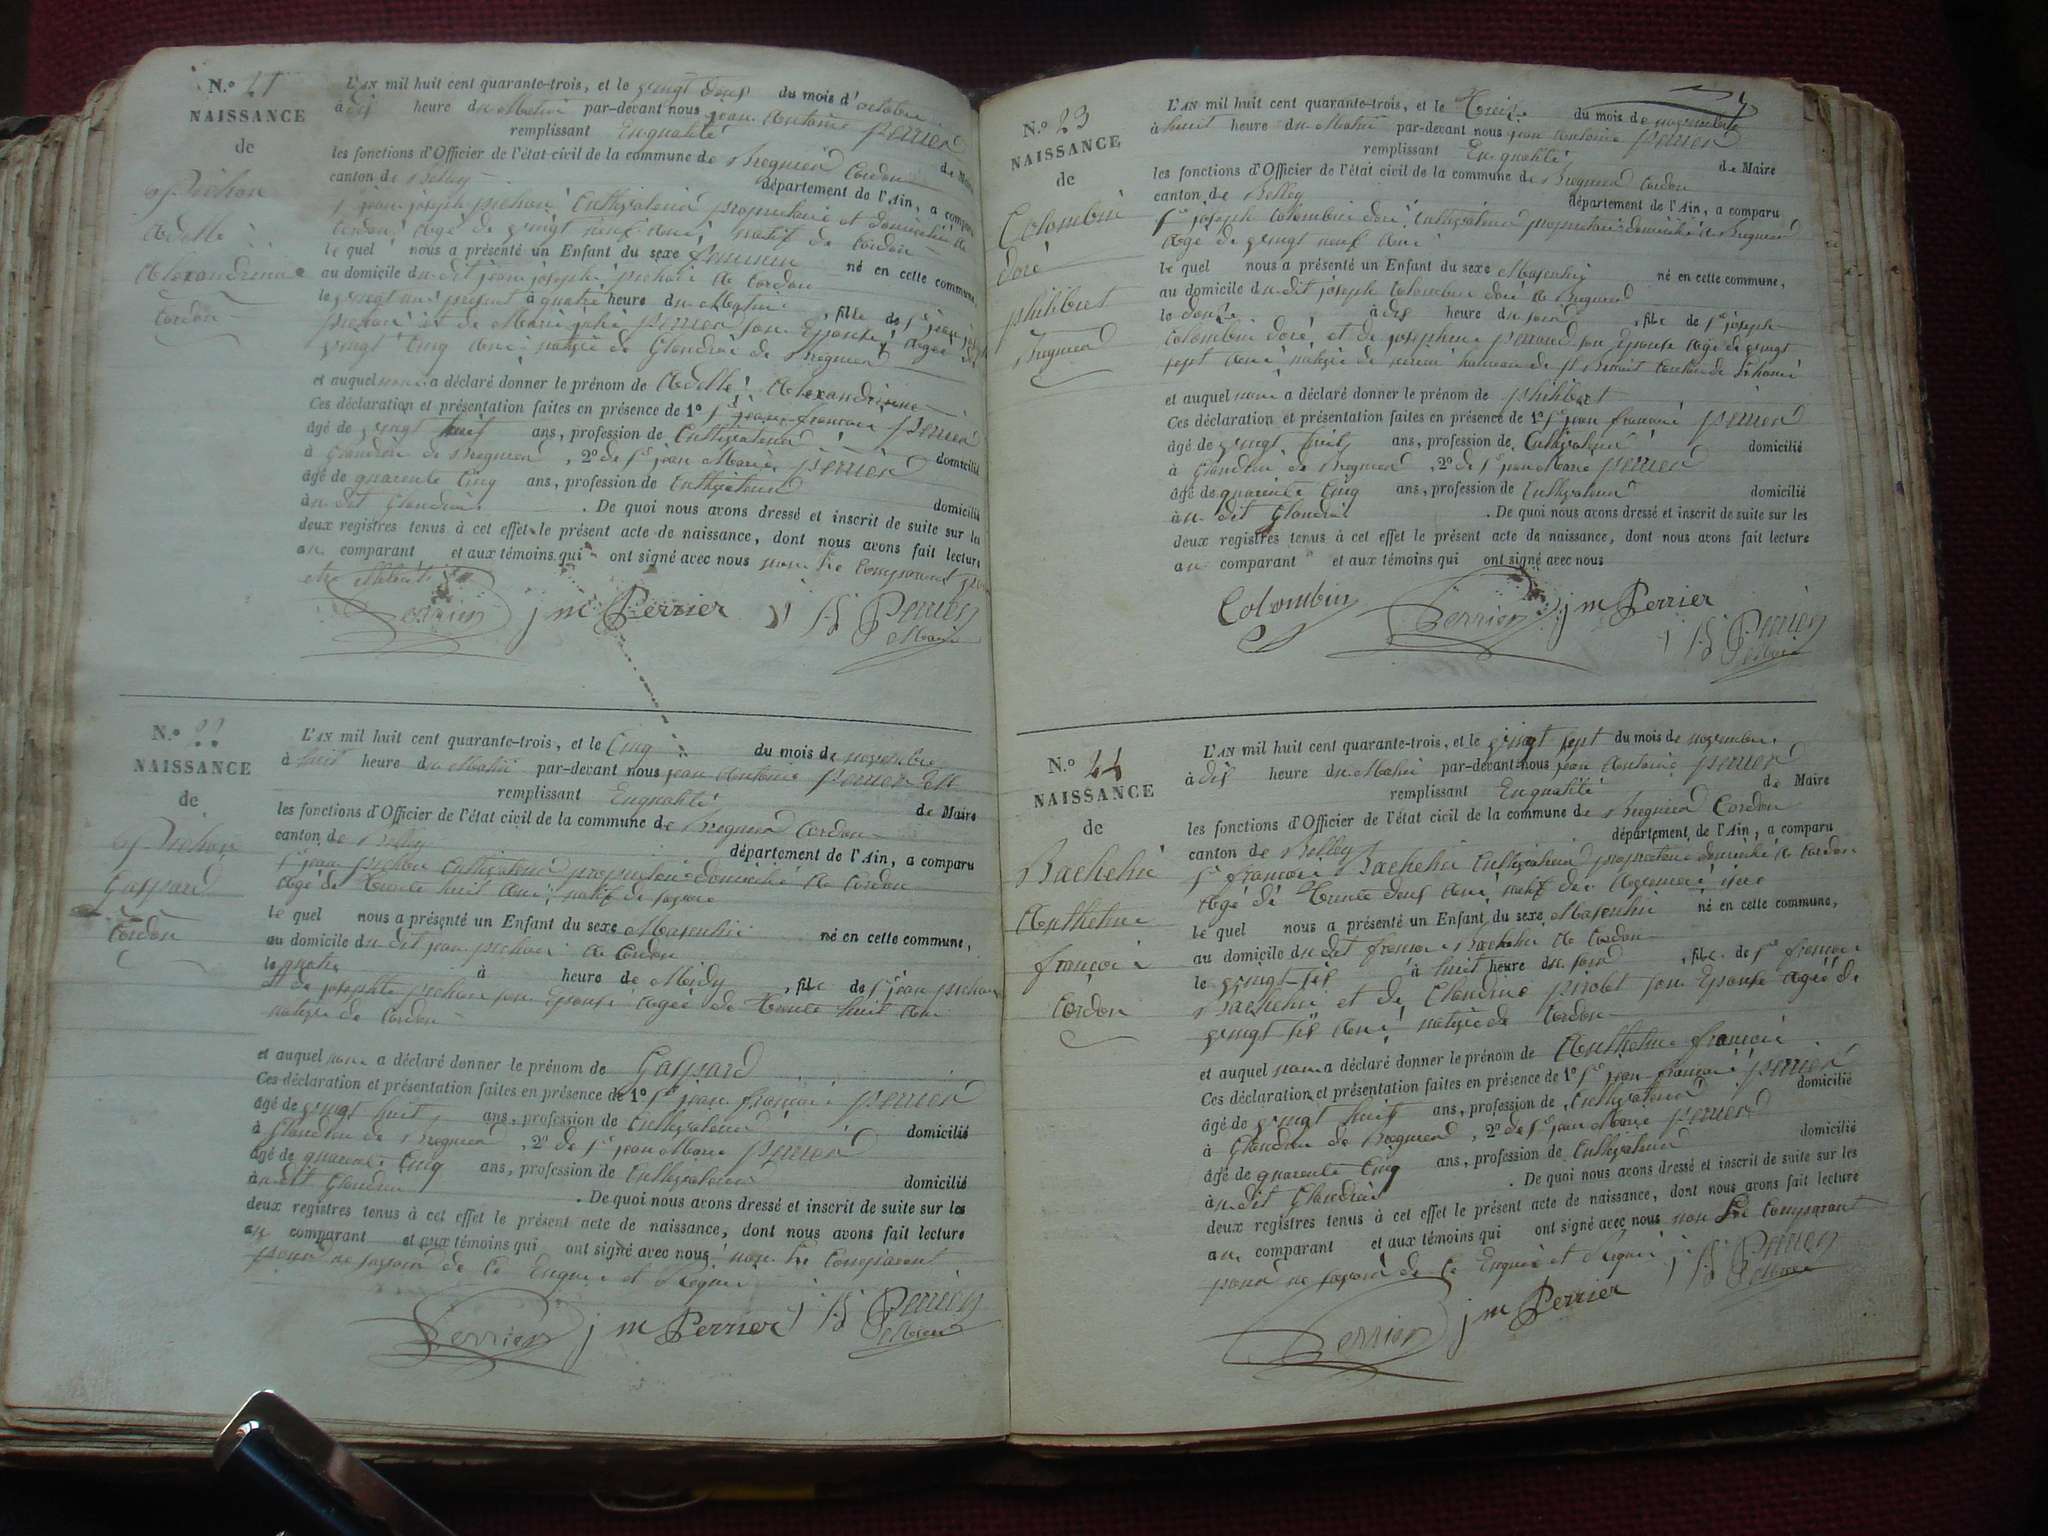 N.o 21
NAISSANCE
de
Pichon
Adelle
Alexandrine
Cordon
L'AN mil huit cent quarante-trois, et le vingt deux du mois d'octobre
à dix heure du Matin par-devant nous jean Antoine perrier
remplissant En qualité de Maire
les fonctions d'Officier de l'état civil de la commune de Bregnier Cordon
canton de Belley département de l'Ain, a comparu
Sr jean joseph pichon Cultivateur propriétaire et domicilié à
Cordon Agé de vingt neuf Ans natif de Cordon
le quel nous a présenté un Enfant du sexe féminin né en cette commune,
au domicile du dit jean joseph pichon à Cordon
le vingt un présent à quatre heure du Matin, fille de Sr jean joseph
pichon et de Marie julie perrier son Epouse Agée de
vingt Cinq Ans native de Glandieu de Bregnier
et auquel nom a déclaré donner le prénom de Adelle Alexandrine
Ces déclaration et présentation faites en présence de 1o Sr jean francois perrier
âgé de vingt huit ans, profession de Cultivateur domicilié
à Glandieu de Bregnier, 2o de Sr jean Marie perrier
âgé de quarente Cinq ans, profession de Cultivateur domicilié
au dit Glandieu. De quoi nous avons dressé et inscrit de suite sur les
deux registres tenus à cet effet le présent acte de naissance, dont nous avons fait lecture
au comparant et aux témoins qui ont signé avec nous non le Comparant pour
Perrier j m Perrier j A Perrier
Maire
N.o 22
NAISSANCE
de
Pichon
Gaspard
Cordon
L'AN mil huit cent quarante-trois, et le Cinq du mois de novembre
à huit heure du Matin par-devant nous jean Antoine perrier
remplissant En qualité de Maire
les fonctions d'Officier de l'état civil de la commune de Bregnier Cordon
canton de Belley département de l'Ain, a comparu
Sr jean pichon Cultivateur propriétaire domicilié à Cordon
Agé de trente huit Ans natif de
le quel nous a présenté un Enfant du sexe Masculin né en cette commune,
au domicile du dit jean pichon à Cordon
le quatre à heure de Midy, fils de Sr jean pichon
et de josephte pichon son Epouse Agée de trente huit Ans
native de Cordon
et auquel nom a déclaré donner le prénom de Gaspard
Ces déclaration et présentation faites en présence de 1o Sr jean francois perrier
âgé de vingt huit ans, profession de Cultivateur domicilié
à Glandieu de Bregnier, 2o de Sr jean Marie perrier
âgé de quarente Cinq ans, profession de Cultivateur domicilié
au dit Glandieu. De quoi nous avons dressé et inscrit de suite sur les
deux registres tenus à cet effet le présent acte de naissance, dont nous avons fait lecture
au comparant et aux témoins qui ont signé avec nous non le Comparant
pour ne savoir de Ce Enquis et Requis
Perrier j m Perrier j A Perrier
Maire
N.o 23
NAISSANCE
de
Colombin
doré
philibert
Bregnier
L'AN mil huit cent quarante-trois, et le treize du mois de novembre
à huit heure du Matin par-devant nous jean Antoine perrier
remplissant En qualité de Maire
les fonctions d'Officier de l'état civil de la commune de Bregnier Cordon
canton de Belley département de l'Ain, a comparu
Sr joseph Colombin doré Cultivateur propriétaire domicilié à Bregnier
Agé de vingt neuf Ans
le quel nous a présenté un Enfant du sexe Masculin né en cette commune,
au domicile du dit joseph Colombin doré à Bregnier
le douze à dix heure du soir, fils de Sr joseph
Colombin doré et de josephine perraud son Epouse Agé de vingt
sept Ans native de hameau de St Benoit Canton de Lhuis
et auquel nom a déclaré donner le prénom de philibert
Ces déclaration et présentation faites en présence de 1o Sr jean francois perrier
âgé de vingt huit ans, profession de Cultivateur domicilié
à Glandieu de Bregnier, 2o de Sr jean Marie perrier
âgé de quarente Cinq ans, profession de Cultivateur domicilié
au dit Glandieu. De quoi nous avons dressé et inscrit de suite sur les
deux registres tenus à cet effet le présent acte de naissance, dont nous avons fait lecture
au comparant et aux témoins qui ont signé avec nous
Colombin Perrier j m Perrier
j A Perrier
Maire
N.o 24
NAISSANCE
de
Bachelin
Anthelme
francois
Cordon
L'AN mil huit cent quarante-trois, et le vingt sept du mois de novembre
à dix heure du Matin par-devant nous jean Antoine perrier
remplissant En qualité de Maire
les fonctions d'Officier de l'état civil de la commune de Bregnier Cordon
canton de Belley département de l'Ain, a comparu
Sr francois Bachelin Cultivateur propriétaire domicilié à Cordon
Agé de trente deux Ans natif des
le quel nous a présenté un Enfant du sexe Masculin né en cette commune,
au domicile du dit francois Bachelin à Cordon
le vingt six à huit heure du soir, fils de Sr francois
Bachelin et de Claudine pirolet son Epouse Agée de
vingt six Ans native de Cordon
et auquel nom a déclaré donner le prénom de Anthelme francois
Ces déclaration et présentation faites en présence de 1o Sr jean francois perrier
âgé de vingt huit ans, profession de Cultivateur domicilié
à Glandieu de Bregnier, 2o de Sr jean Marie perrier
âgé de quarente Cinq ans, profession de Cultivateur domicilié
au dit Glandieu. De quoi nous avons dressé et inscrit de suite sur les
deux registres tenus à cet effet le présent acte de naissance, dont nous avons fait lecture
au comparant et aux témoins qui ont signé avec nous non le Comparant
pour ne savoir de Ce Enquis et Requis j A Perrier
Maire
Perrier j m Perrier